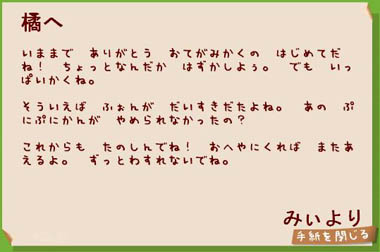 橘へ
いままで　ありがとう　おてがみかくの　はじめてだ
ね！　ちょっとなんだか　はずかしよぅ。　でも　いっ
ぱいかくね。
そういえば　ふぉんが　だいすきだたよね。　あの　ぷ
にぷにかんが　やめられなかったの？
これからも　たのしんでね！　おへやにくれば　またあ
えるよ。　ずっとわすれないでね。
みぃより
手紙を閉じる